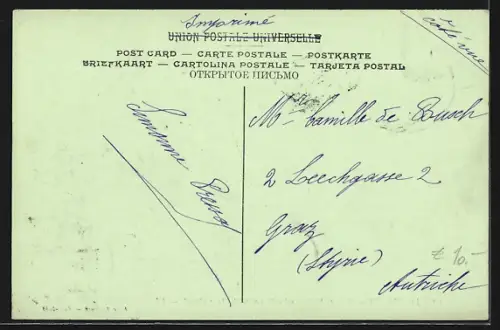 Imprimé
UNION POSTALE UNIVERSELLE
POST CARD — CARTE POSTALE — POSTKARTE
BRIEFKAART — CARTOLINA POSTALE — TARJETA POSTAL
ОТКРЫТОЕ ПИСЬМО
côté vue
Simonne
Mlle Camille de Busch
2 Leechgasse 2
Graz
(Styrie)
Autriche
€ 10.-